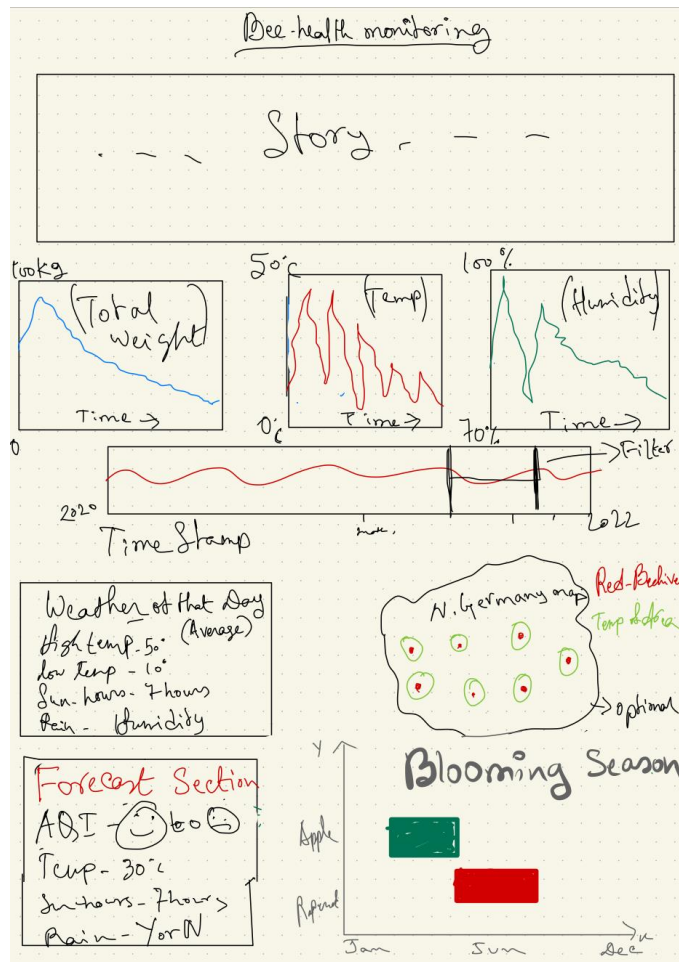 Bee-health monitoring
Story
100kg
50°C
100%
(Total weight)
(Temp)
(Humidity)
Time →
Time →
Time →
0
0°C
70%
Filter
2020
2022
Time Stamp
Weather of that Day
(Average)
High temp - 50°
Low Temp - 10°
Sun-hours - 7 hours
Humidity
N. Germany map
Red-Beehive
Temp of Area
optional
Forecast Section
AQI - to
Temp - 30°C
Sun hours - 7 hours
Rain - Y or N
Blooming Season
Y
Apple
x
Jan
Jun
Dec